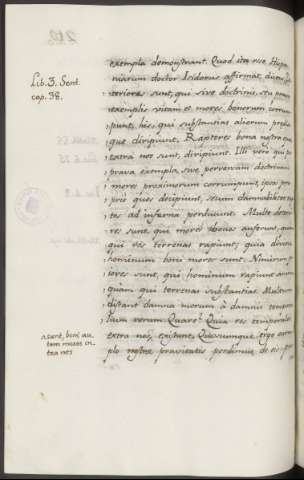 exempla demonstrant. Quod ita esse Hispa-
Lib. 3. Sent. cap. 38.
niarum doctor Isidorus affirmat, dicens: De-
teriores sunt, qui sive doctrinis, seu pravis
exemplis vitam et mores bonorum corrum-
punt, his, qui substantias aliorum prædia-
que diripiunt. Raptores bona nostra quæ
extra nos sunt, diripiunt. Illi vero qui per
prava exempla, sive perversam doctrinam
mores proximorum corrumpunt, ipsos pro-
prie quos decipiunt, secum damnabiliter mit-
tes ad inferna perducunt. Multo deterio-
res sunt, qui mores auferunt, quam
qui res terrenas rapiunt; quia divitiæ
hominum boni mores sunt. Nimirum pe-
jores sunt, qui hominum rapiunt animam
quam qui terrenas substantias. Multum
distant damna morum à damnis tempora-
lium rerum. Quare? Quia res temporales
extra nos, existunt. Quicumque ergo exem-
plo nostræ pravitatis perdimus de eis
^sunt, boni au-
tem mores in-
tra nos